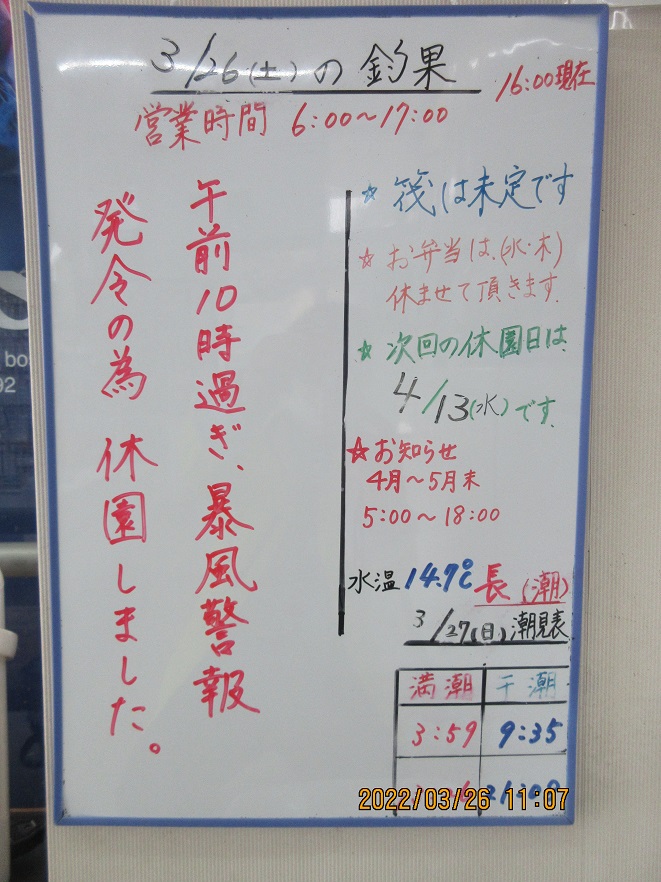 3/26(土)の釣果
16:00現在
営業時間 6:00～17:00
午前10時過ぎ、暴風警報
発令の為 休園しました。
☆筏は未定です
☆お弁当は、(水・木)
休ませて頂きます。
☆次回の休園日は、
4/13(水)です。
☆お知らせ
4月～5月末
5:00～18:00
水温14.7℃ 長(潮)
3/27(日)潮見表
満潮 干潮
3:59 9:35
2022/03/26 11:07
bo
92